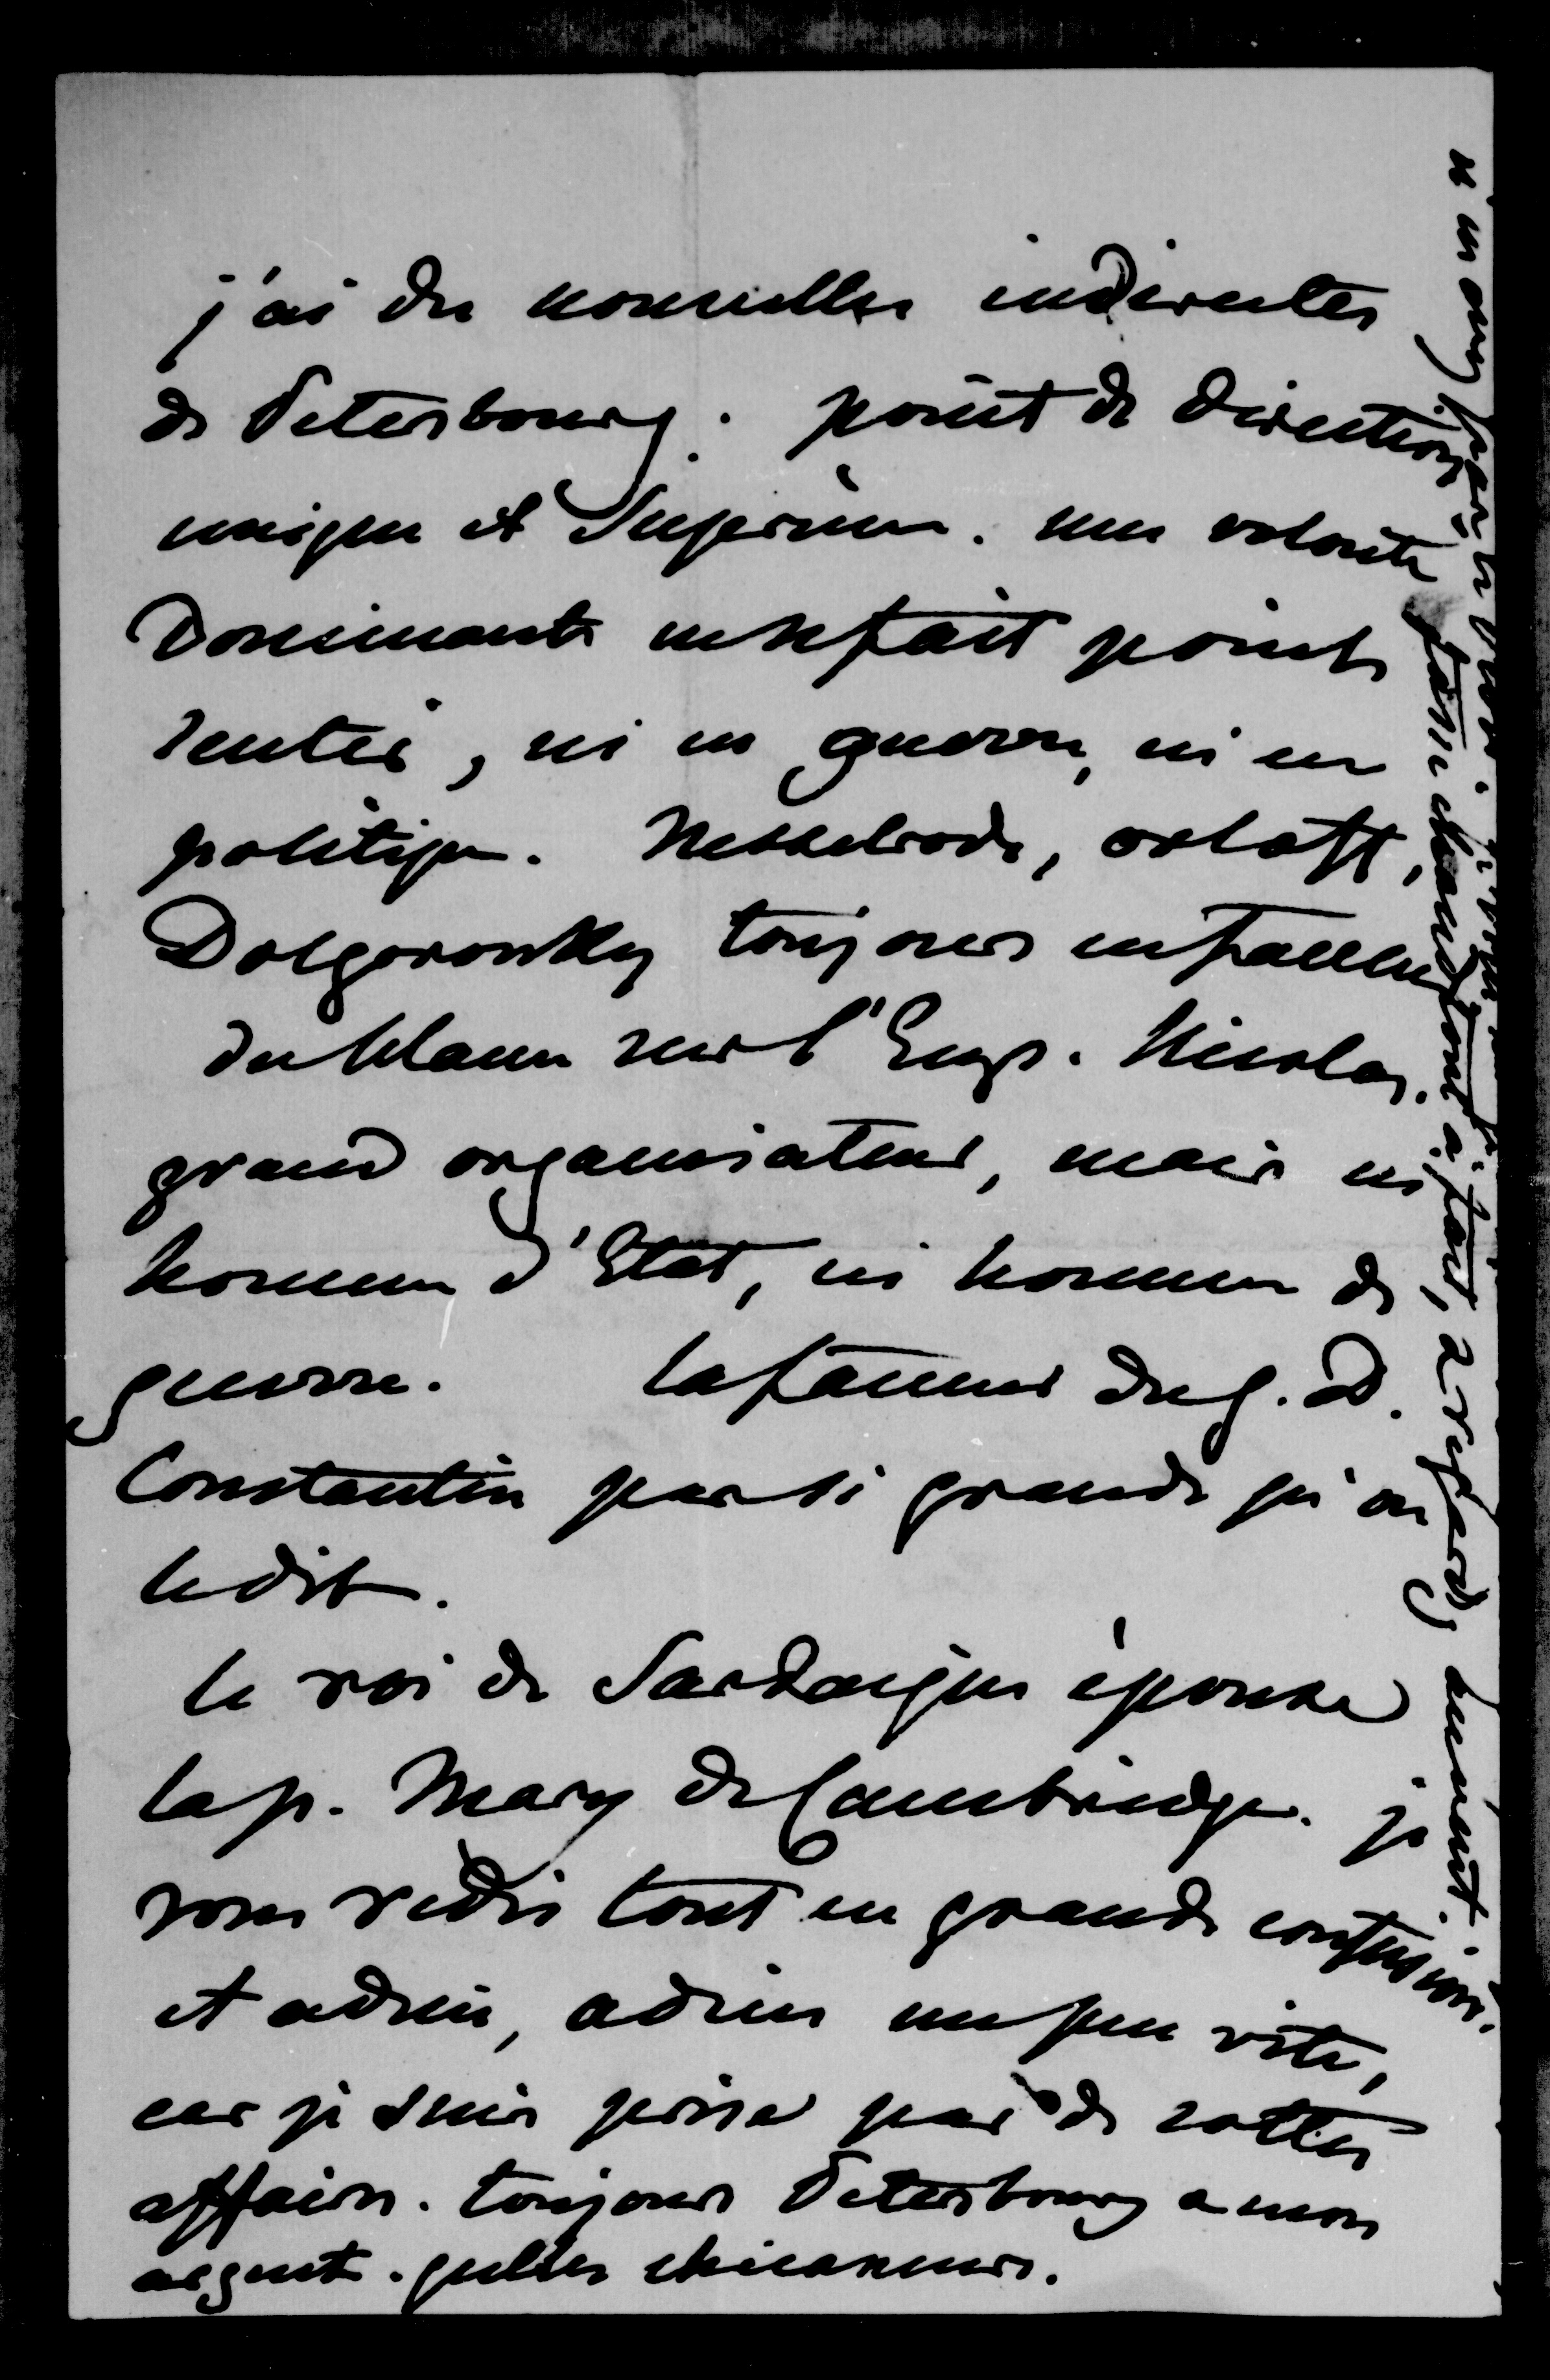 j'ai des nouvelles indirectes
de Petersbourg. point de direction
unique et Supérieure. une volonté
Dominante ne se fait point
sentir, ni en guerre, ni en
politique. Nesselrode, orloff,
Dolgorouky toujours en faveur
du blame sur l'Emp. Nicolas.
grand organisateur, mais ni
homme d'Etat, ni homme de
guerre. la faveur du g. D.
Constantin pas si grande qu'on
le dit.
le roi de Sardaigne épouse
la p. Mary de Cambridge. je
vous redis tout en grande confusion.
et adieu, adieu un peu vite,
car je suis prise par de sottes
affaires. toujours Petersbourg a mon
argent. quelles chicaneurs.
tout à fait, a regard